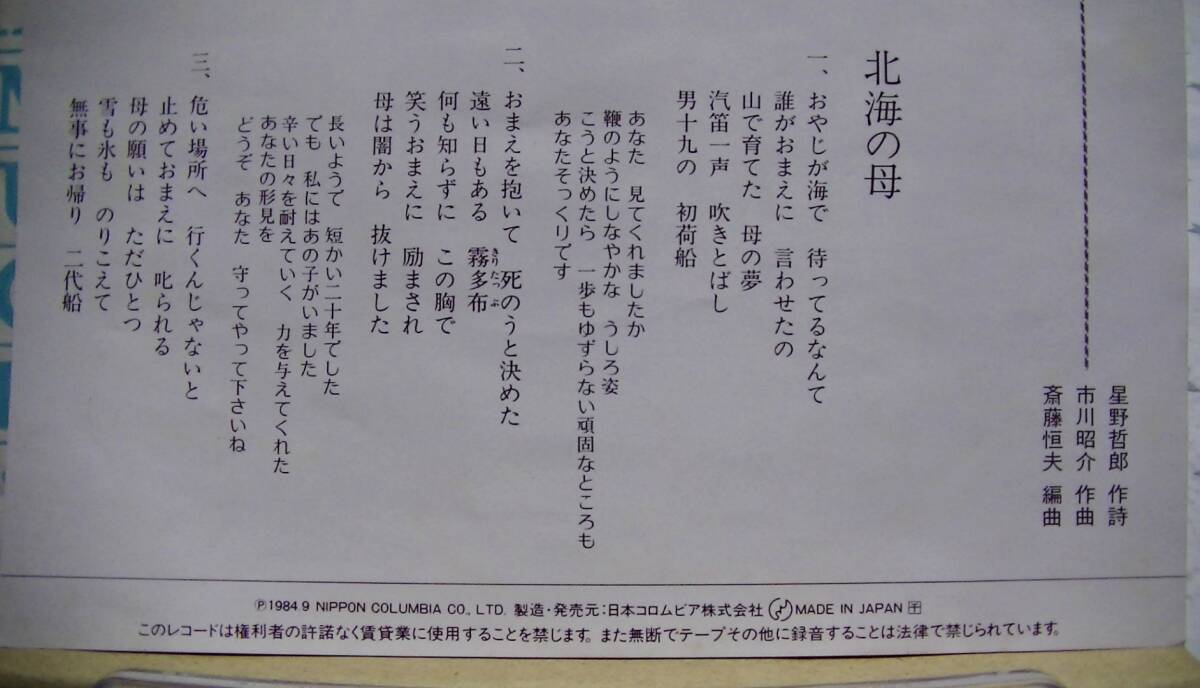 星野哲郎 作詩
市川昭介 作曲
斎藤恒夫 編曲
北海の母
一、おやじが海で 待ってるなんて
誰がおまえに 言わせたの
山で育てた 母の夢
汽笛一声 吹きとばし
男十九の 初荷船
あなた 見てくれましたか
鞭のようにしなやかな うしろ姿
こうと決めたら 一歩もゆずらない頑固なところも
あなたそっくりです
二、おまえを抱いて 死のうと決めた
遠い日もある 霧多布
きりたっぷ
何も知らずに この胸で
笑うおまえに 励まされ
母は闇から 抜けました
長いようで 短かい二十年でした
でも 私にはあの子がいました
辛い日々を耐えていく 力を与えてくれた
あなたの形見を
どうぞ あなた 守ってやって下さいね
三、危い場所へ 行くんじゃないと
止めておまえに 叱られる
母の願いは ただひとつ
雪も氷も のりこえて
無事にお帰り 二代船
Ⓟ1984 9 NIPPON COLUMBIA CO., LTD. 製造・発売元:日本コロムビア株式会社 MADE IN JAPAN
このレコードは権利者の許諾なく賃貸業に使用することを禁じます。また無断でテープその他に録音することは法律で禁じられています。